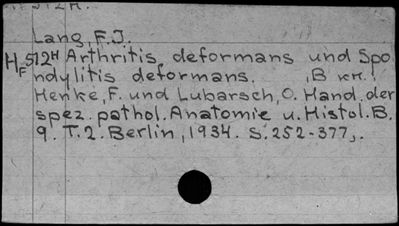 Lang, F.J.
HF 512H Arthritis deformans und Spo
ndylitis deformans. , В кн.:
Henke, F. und Lubarsch, O. Hand. der
spez. pathol. Anatomie u. Histol. B.
9. T. 2. Berlin, 1934. S. 252-377,.